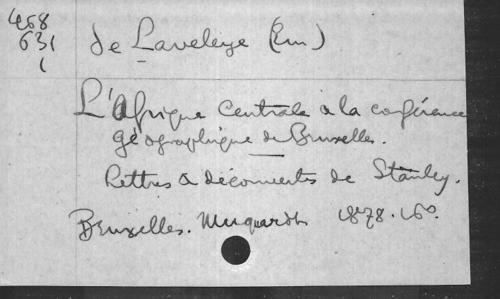 468
631
1
de Laveleye (Em)
L'Afrique Centrale à la conférence
géographique de Bruxelles.
Lettres & découvertes de Stanley.
Bruxelles. Muquardt 1878. 16º.